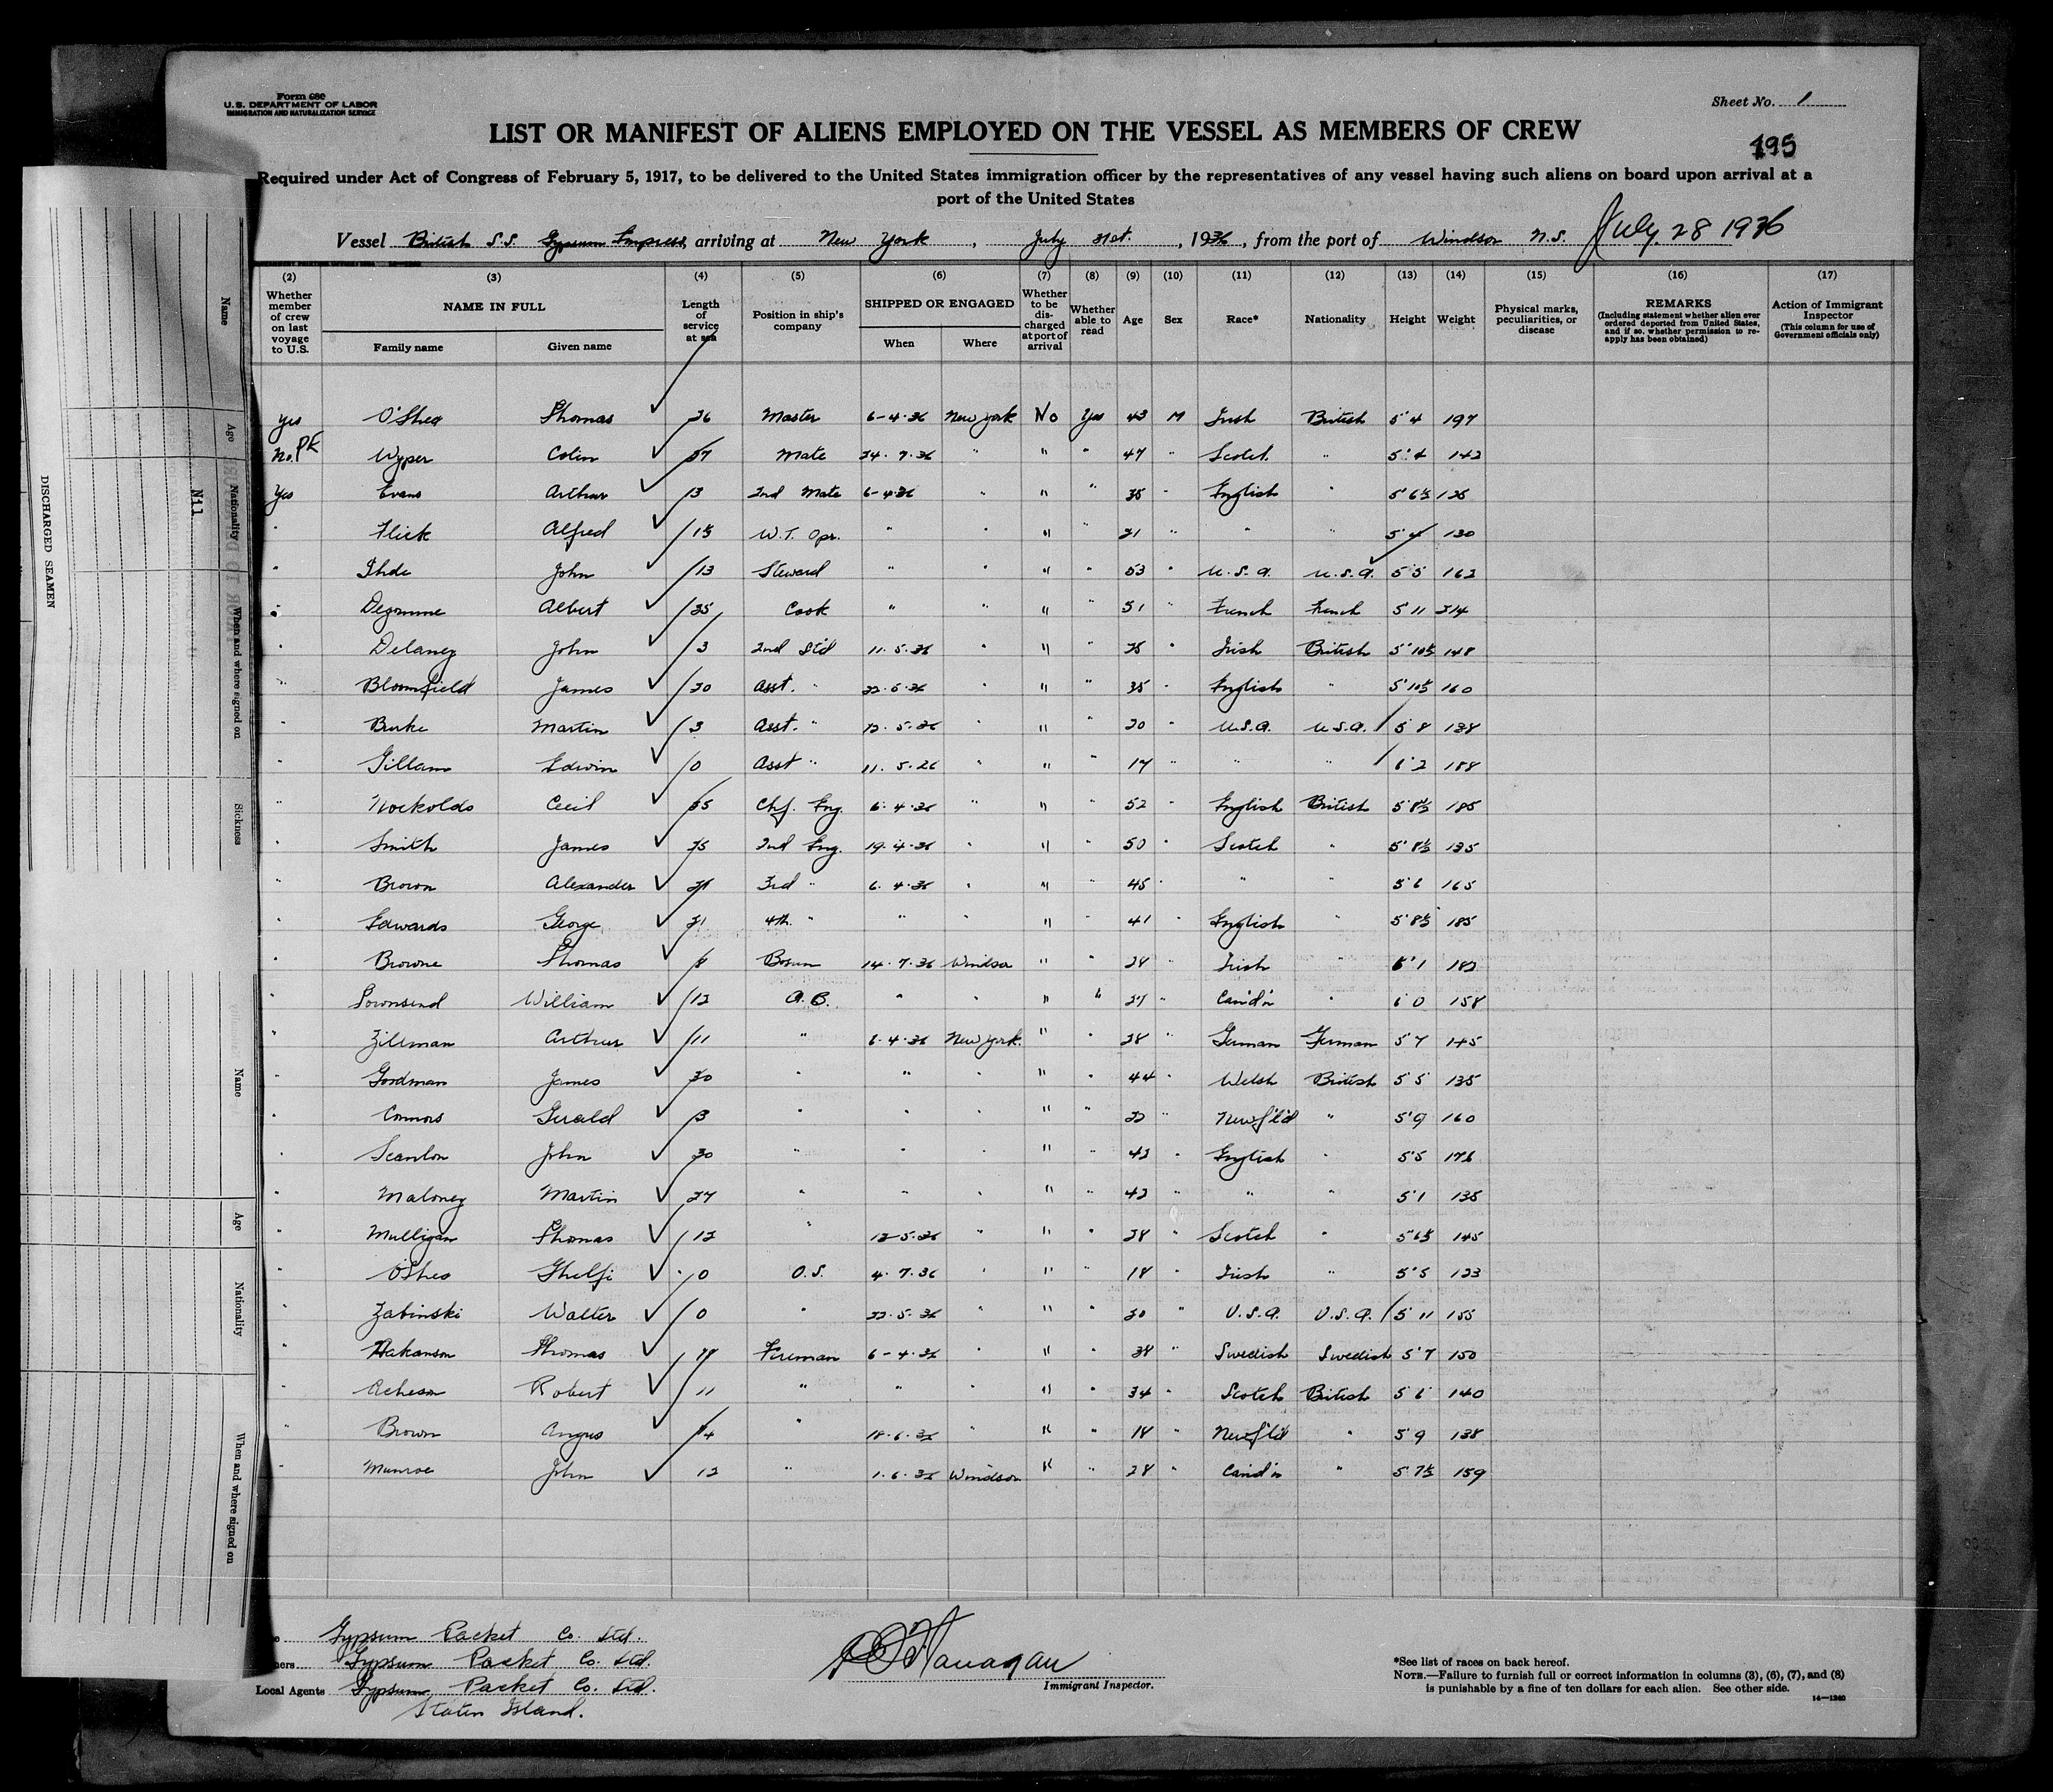 Form 680
U.S. DEPARTMENT OF LABOR
IMMIGRATION AND NATURALIZATION SERVICE
Sheet No. 1
LIST OR MANIFEST OF ALIENS EMPLOYED ON THE VESSEL AS MEMBERS OF CREW
195
Required under Act of Congress of February 5, 1917, to be delivered to the United States immigration officer by the representatives of any vessel having such aliens on board upon arrival at a
port of the United States
Vessel British S.S. Gypsum Empress, arriving at New York, July 31st., 1936, from the port of Windsor N.S. July. 28 1936
(2) (3) (4) (5) (6) (7) (8) (9) (10) (11) (12) (13) (14) (15) (16) (17)
Whether member of crew on last voyage to U.S.
NAME IN FULL
Family name
Given name
Length of service at sea
Position in ship's company
SHIPPED OR ENGAGED
When
Where
Whether to be discharged at port of arrival
Whether able to read
Age
Sex
Race*
Nationality
Height
Weight
Physical marks, peculiarities, or disease
REMARKS
(Including statement whether alien ever ordered deported from United States, and if so, whether permission to reapply has been obtained)
Action of Immigrant Inspector
(This column for use of Government officials only)
yes O'Shea Thomas 26 Master 6-4-36 New York No Yes 43 M Irish British 5'4 197
No. PE Wyper Colin Mate 24.7.36 " " " 47 " Scotch " 5'4 142
Yes Evans Arthur 13 2nd Mate 6-4-36 " " " 35 " English " 5'6½
" Flick Alfred W.T. Opr. " " " " 21 " " " 5'4 130
" Ihde John 13 Steward " " " " 53 " U.S.A. U.S.A. 5'5 162
" Degomme Albert 35 Cook " " " " 51 " French French 5'11 214
" Delaney John 3 2nd Std 11.5.36 " " " " Irish British 5'10½ 148
" Bloomfield James 20 Asst. " 22.5.36 " " " 35 " English " 5'10½ 160
" Burke Martin 3 Asst. " 12.5.36 " " " 20 " U.S.A. U.S.A. 5'8 138
" Gillam Edwin 0 Asst " 11.5.36 " " " 17 " " " 6'2 188
" Nockolds Cecil 35 Chf. Eng. 6.4.36 " " " 52 " English British 5'8½ 185
" Smith James 25 2nd Eng. 19.4.36 " " " 50 " Scotch " 5'8½ 135
" Brown Alexander 3rd " 6.4.36 " " " 45 " " " 5'6 165
" Edwards George 21 4th. " " " " " 41 " English " 5'8½ 185
" Browne Thomas 8 Bosun 14.7.36 Windsor " " 24 " Irish " 6'1 182
" Townsend William 12 A.B. " " " " 27 " Can'd'n " 6'0 158
" Zillman Arthur 11 " 6.4.36 New York. " " 28 " German German 5'7 145
" Goodman James 30 " " " " " 44 " Welsh British 5'5 135
" Connors Gerald 3 " " " " " 22 " Newf'l'd " 5'9 160
" Scanlon John 30 " " " " " 42 " English " 5'5 176
" Maloney Martin 27 " " " " " 42 " " " 5'1 135
" Mulligan Thomas 12 " 12-5-36 " " " 28 " Scotch " 5'6½ 145
" O'Shea 0 O.S. 4.7.36 " " " 18 " Irish " 5'5 123
" Zabinski Walter 0 " 22.5.36 " " " 20 " U.S.A. U.S.A. 5'11 155
" Hakanson Thomas 18 Fireman 6-4-36 " " " 38 " Swedish Swedish 5'7 150
" Acheson Robert 11 " " " " " 34 " Scotch British 5'6 140
" Brown Angus " 18.6.36 " " " 18 " Newf'l'd " 5'9 138
" Munroe John 12 " 1.6.36 Windsor " " 28 " Can'd'n " 5'7½ 159
Gypsum Packet Co. Ltd.
Gypsum Packet Co. Ltd.
Local Agents Gypsum Packet Co. Ltd.
Staten Island.
Flanagan
Immigrant Inspector.
*See list of races on back hereof.
NOTE.—Failure to furnish full or correct information in columns (3), (6), (7), and (8)
is punishable by a fine of ten dollars for each alien. See other side.
14—1240
DISCHARGED SEAMEN
Name
Age
Nationality
Nil
When and where signed on
Sickness
Name
Age
Nationality
When and where signed on